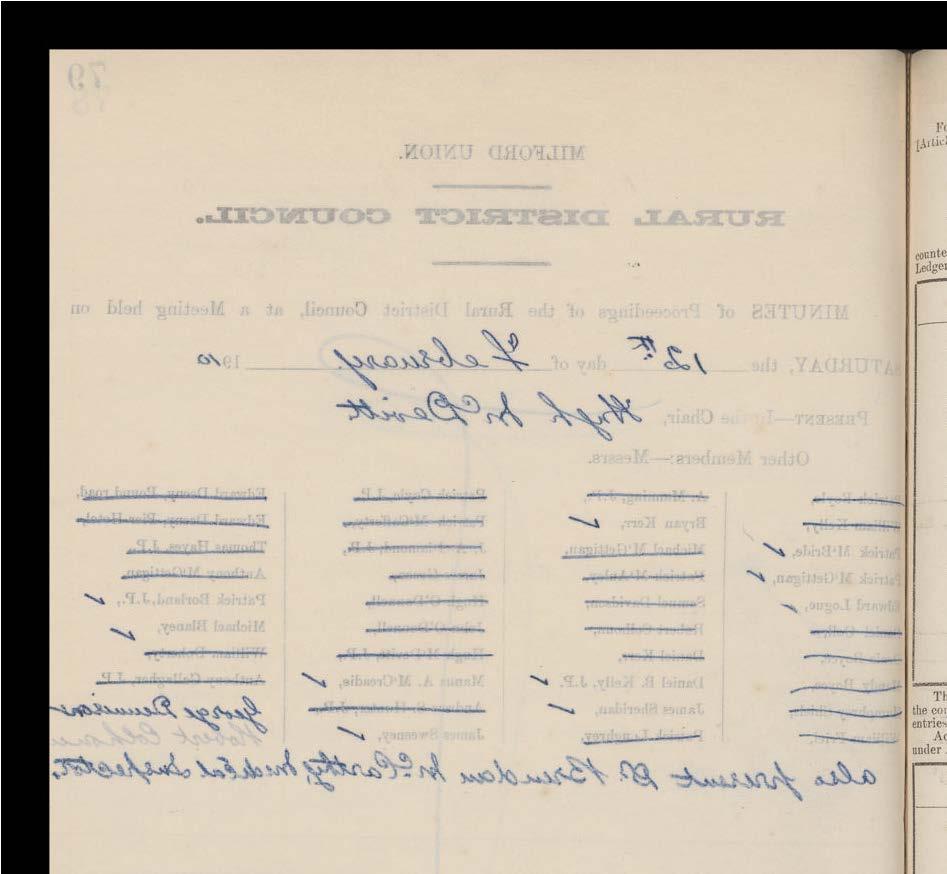 79
MILFORD UNION.
RURAL DISTRICT COUNCIL.
MINUTES of Proceedings of the Rural District Council, at a Meeting held on
SATURDAY, the 12th day of February, 1910
PRESENT—In the Chair, Hugh McDevitt
Other Members:—Messrs.
Patrick Boyle,
William Kelly,
Patrick M'Bride,
Patrick M'Gettigan,
Edward Logue,
Boyce,
Boyce,
Humphrey Childs,
William Friel,
A. Manning, J.P.,
Bryan Kerr,
Michael M'Gettigan,
Patrick M'Auley,
Samuel Davidson,
Robert Colhoun,
Daniel Kerr,
Daniel B. Kelly, J.P.
James Sheridan,
Patrick Loughrey,
Patrick Coyle, J.P.
Patrick M'Cafferty,
J.P.,
James Green,
Hugh O'Donnell,
John O'Donnell,
Hugh M'Devitt, J.P.,
Manus A. M'Creadie,
Andrew S. Hunter, J.P.,
James Sweeney,
Edward Deeny, Pound road,
Edward Deeny, Pier Hotel,
Thomas Hayes, J.P.,
Anthony M'Gettigan,
Patrick Borland, J.P.,
Michael Blaney,
William Doherty,
Anthony Gallagher, J.P.
George Dennison
Robert Colhoun
also present Dr. Brendan McCarthy, Medical Inspector,
Fo
[Articl
counte
Ledger
Th
the cou
entries
Ac
under